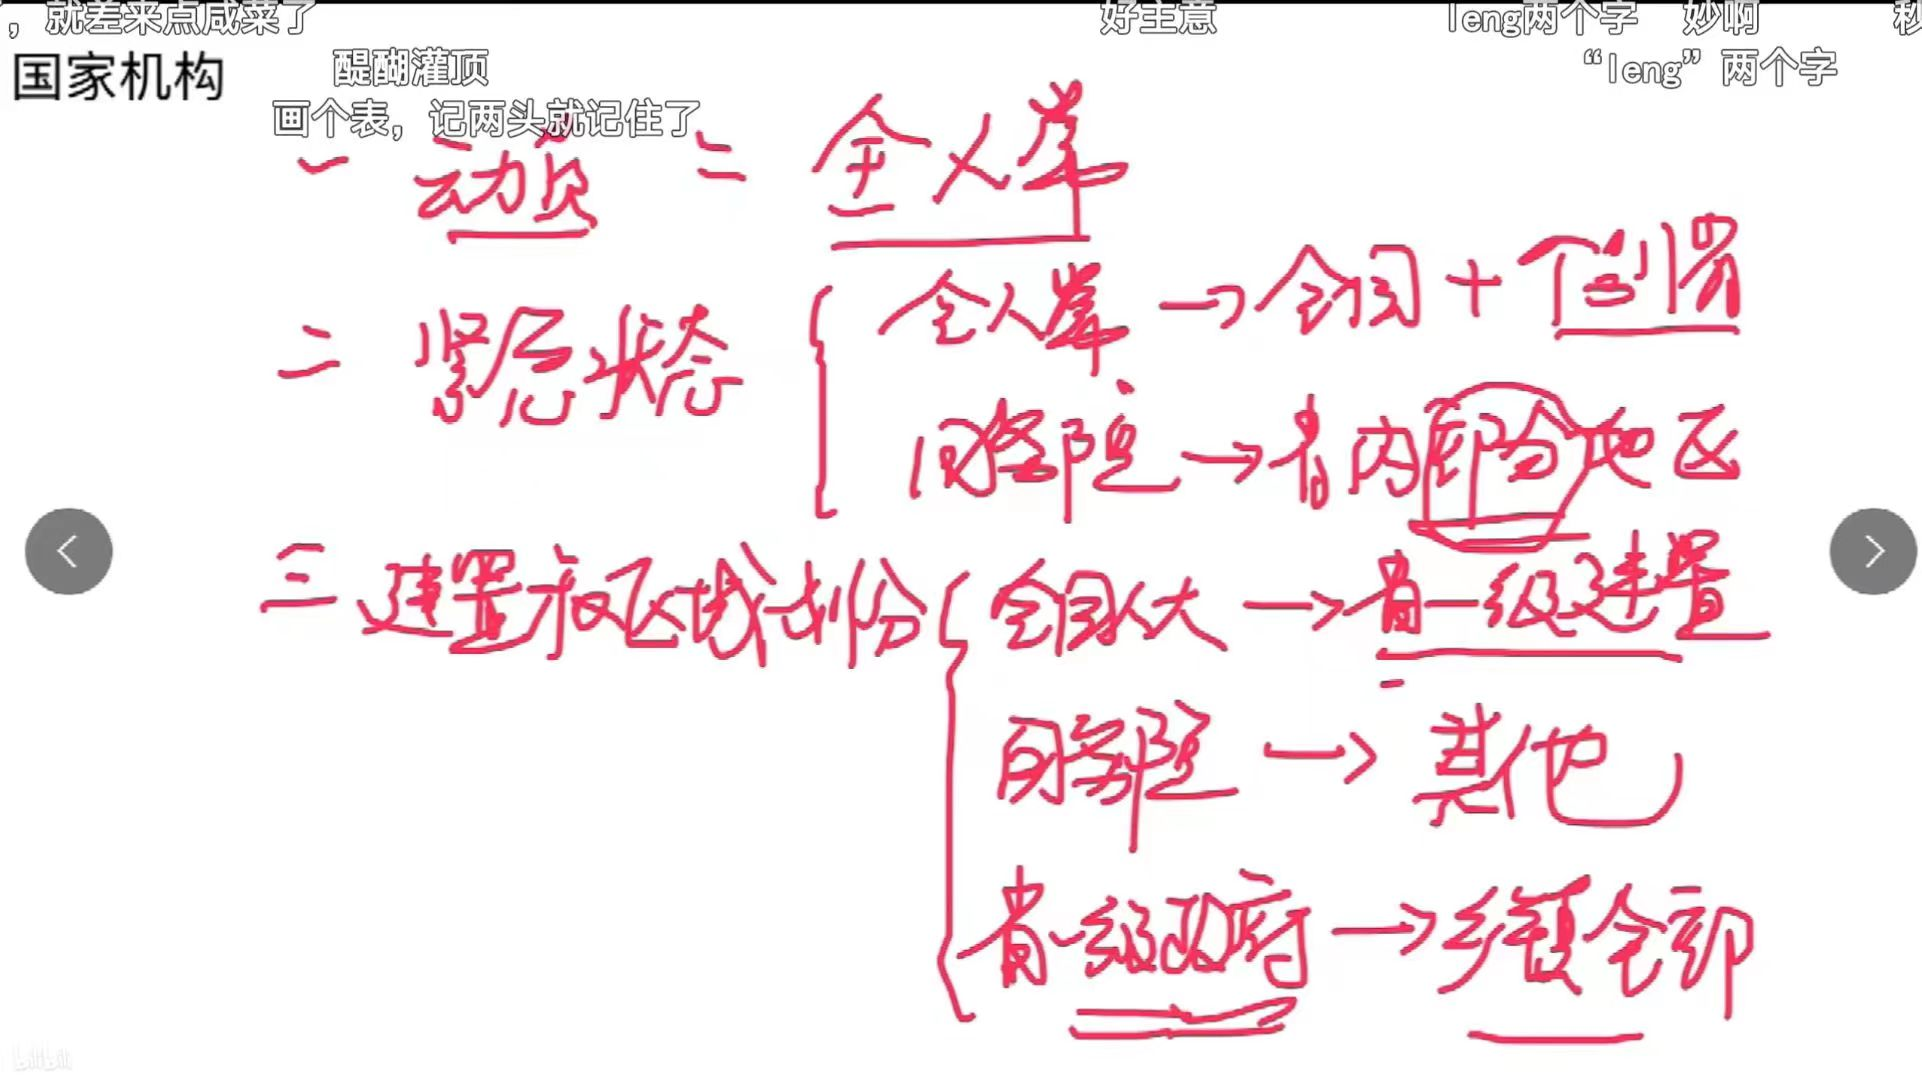 ，就差来点咸菜了 好主意 leng两个字 妙啊
国家机构 醍醐灌顶 “leng”两个字
画个表，记两头就记住了
一 动员 = 全人常
二 紧急状态 { 全人常 → 全国 + 个别省
国务院 → 省内部分地区
三 建置和区域划分 { 全国人大 → 省一级建置
国务院 → 其他
省一级政府 → 乡镇全部
bilibili